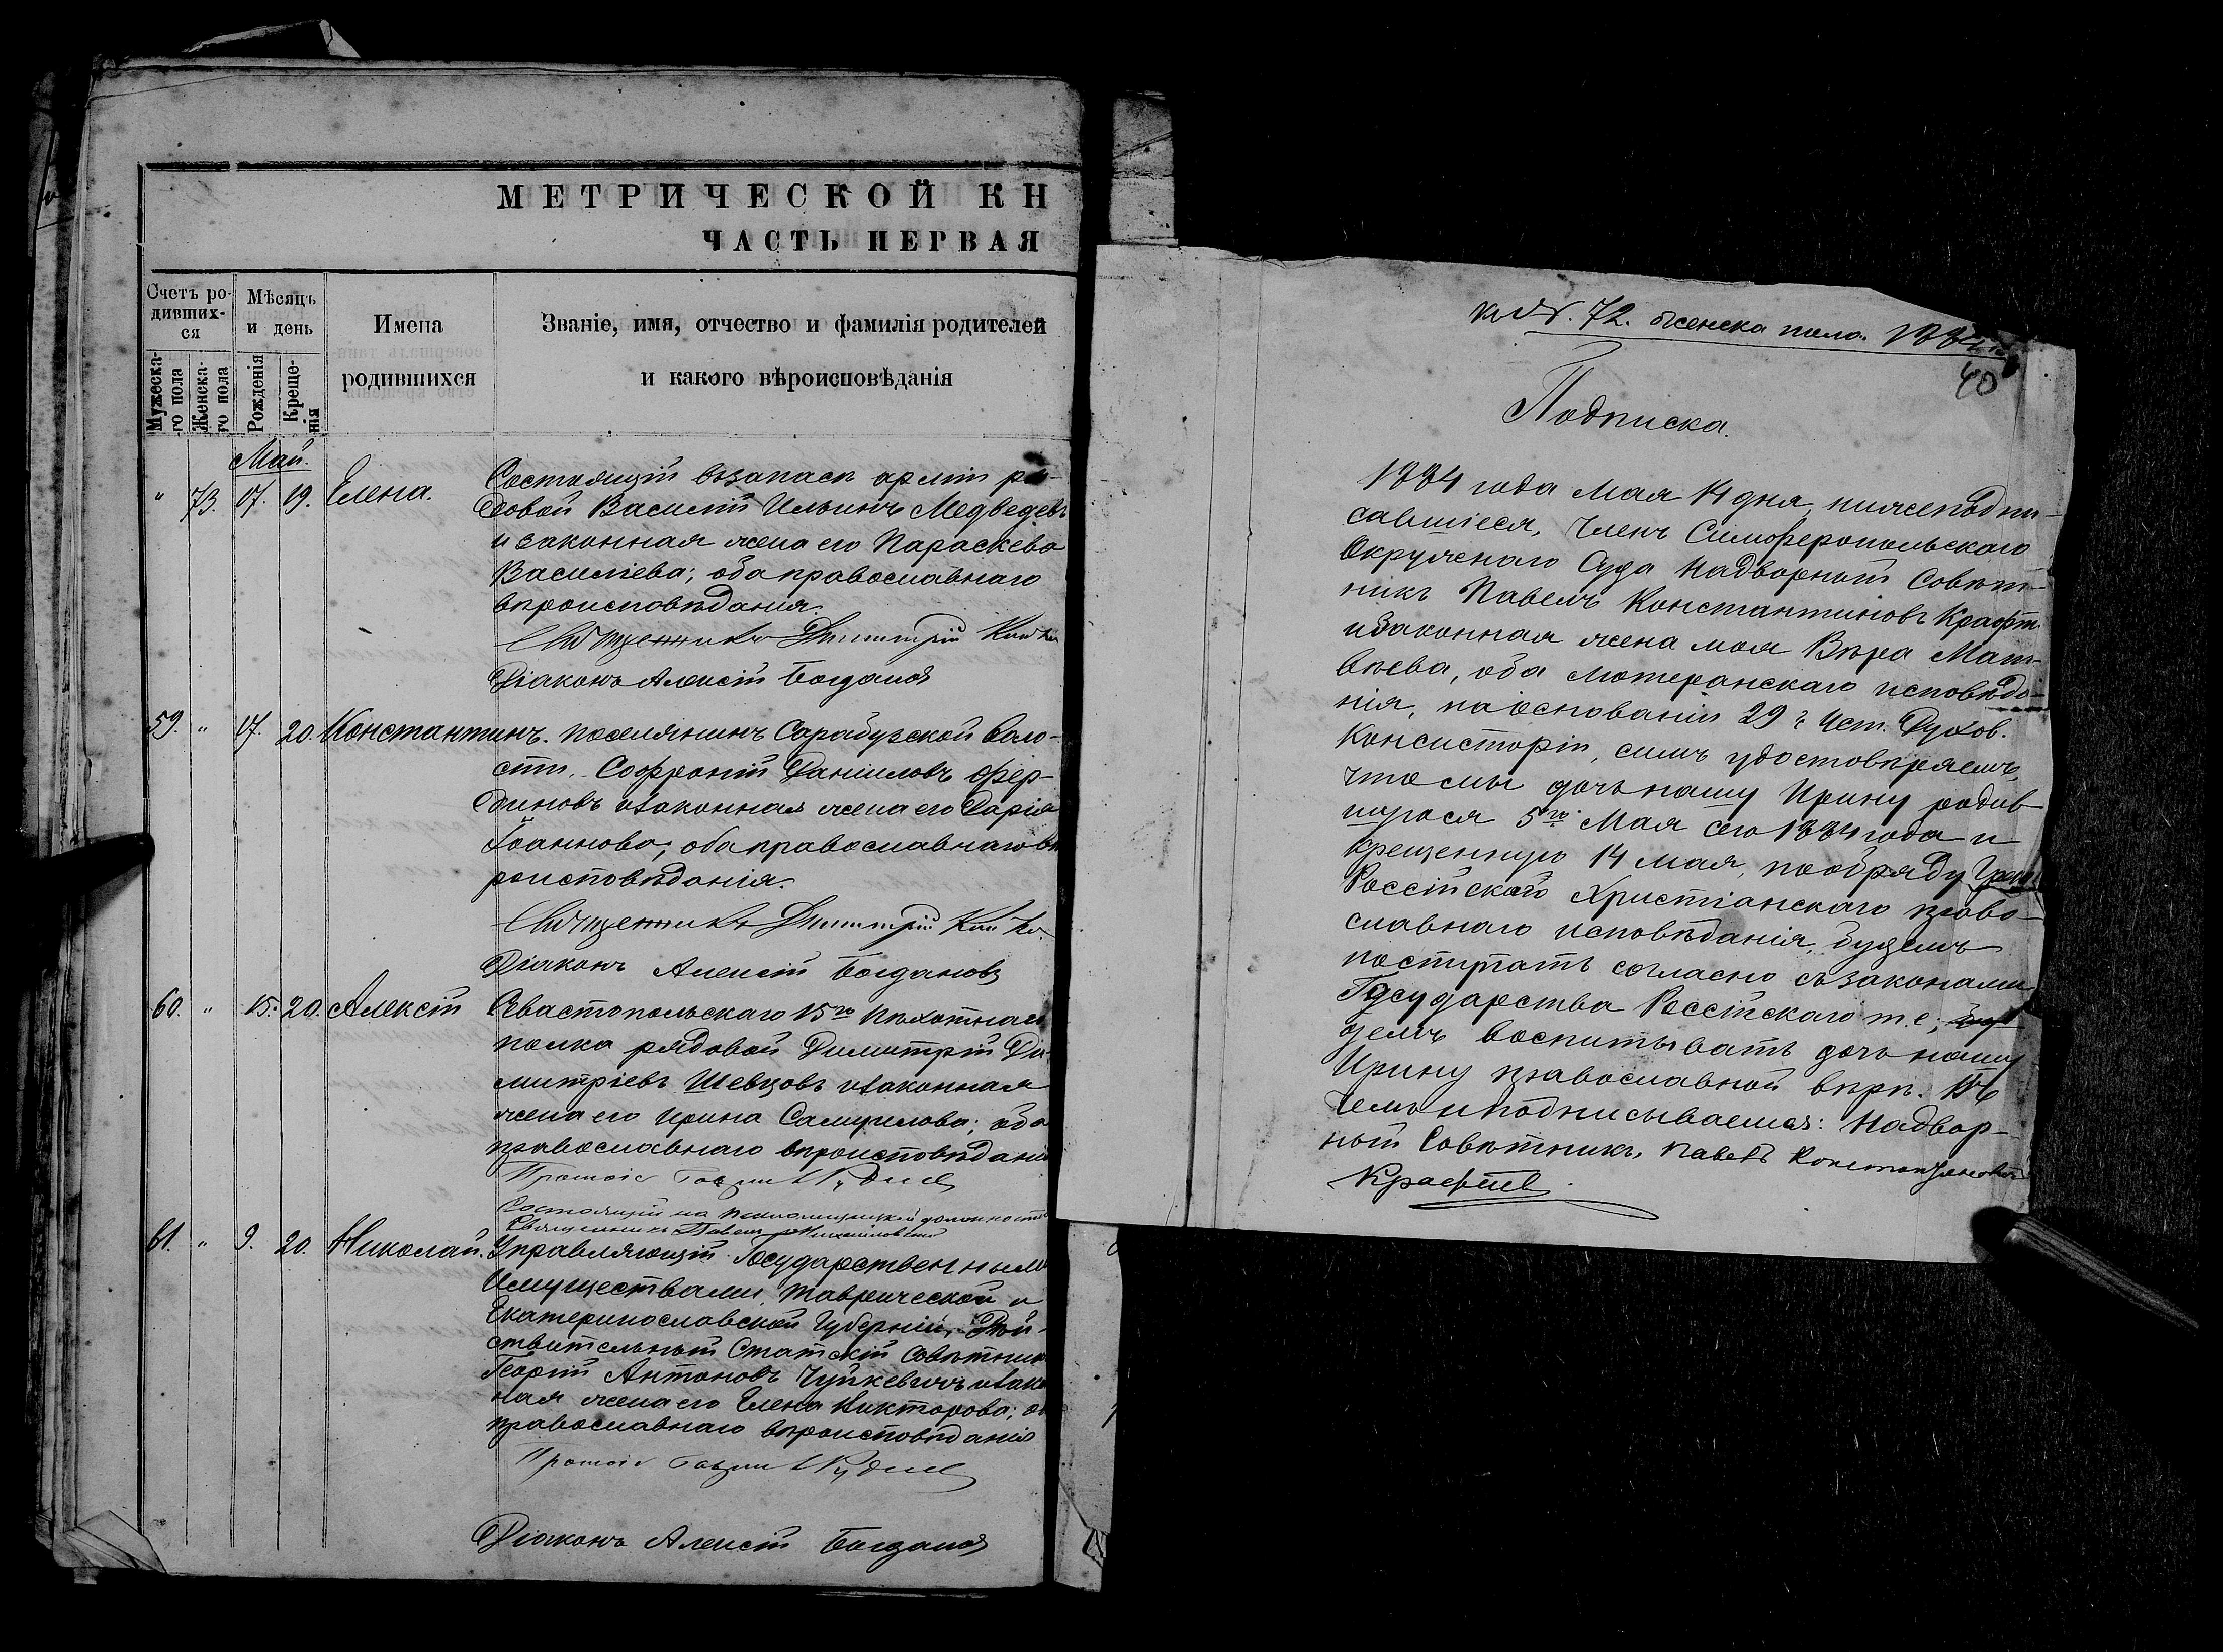 МЕТРИЧЕСКОЙ КН
ЧАСТЬ ПЕРВАЯ
Счетъ ро-
дивших-
ся
Мужеска-
го пола
Женска-
го пола
Мѣсяцъ
и день
Рожденія
Креще-
нія
Имена
родившихся
Званіе, имя, отчество и фамилія родителей
и какого вѣроисповѣданія
Май.
" 73. 17. 19. Елена. Состоящій въ запасѣ арміи ря-
довой Василій Ильинъ Медведевъ
и законная жена его Параскева
Василіева; оба православнаго
вѣроисповѣданія.
Священникъ Димитрій
Діаконъ Алексій Богданов
59. " 17. 20. Константинъ. Поселянинъ Сарабузской воло-
сти, Софроній Даніиловъ Фер-
диновъ и законная жена его Дарія
Іоаннова; оба православнаго вѣ
роисповѣданія.
Священникъ Димитрій
Діаконъ Алексій Богдановъ
60. " 15. 20. Алексій Севастопольскаго 15го Пѣхотнаго
полка рядовой Димитрій Ди-
митріевъ Шевцовъ и законная
жена его Ирина Самуилова; оба
православнаго вѣроисповѣдані
Протоіе
Состоящій на псаломщицкой должности
Священникъ Павелъ
61. " 9. 20. Николай. Управляющій Государственными
Имуществами Таврической и
Екатеринославской Губерній, Дѣй-
ствительный Статскій Совѣтник
Георгій Антоновъ Чуйкевичъ и зако
ная жена его Елена Викторова; о
православнаго вѣроисповѣданія
Протоіе
Діаконъ Алексій Богданов
к № 72. женска пола. 1884 г.
40
Подписка.
1884 года Мая 14 дня, нижеподпи-
савшіеся, Членъ Симферопольскаго
Окружнаго Суда Надворный Совѣт-
никъ Павелъ Константиновъ Крафт
и законная жена моя Вѣра Мат-
вѣева, оба лютеранскаго исповѣда-
нія, на основаніи 29 § Уст. Духов.
Консисторіи, симъ удостовѣряемъ,
что мы дочь нашу Ирину родив
шуюся 5го Мая сего 1884 года и
крещенную 14 Мая, по обряду Греко
Россійскаго Христіанскаго право-
славнаго исповѣданія, будемъ
поступать согласно съ законами
Государства Россійскаго т. е; буд
демъ воспитывать дочь нашу
Ирину православной вѣрѣ. Въ
чемъ и подписываемся: Надвор-
ный Совѣтникъ, Павелъ Константиновичъ
Крафтъ